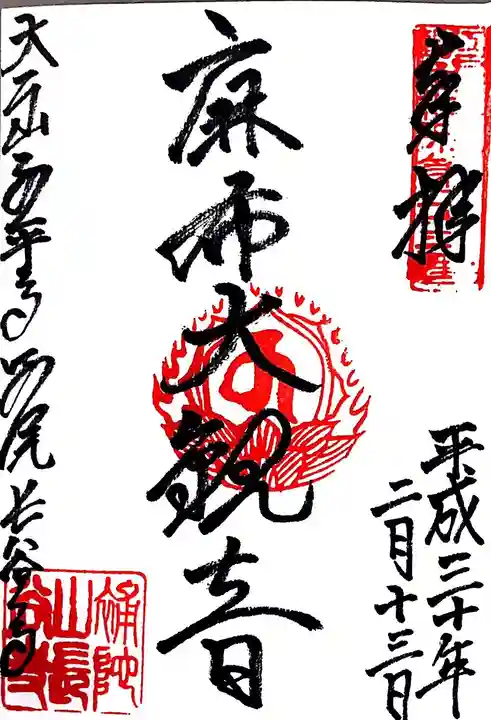 奉拝
平成三十年
二月十三日
麻布大観音
大本山永平寺別院長谷寺
補陀
山長
谷寺